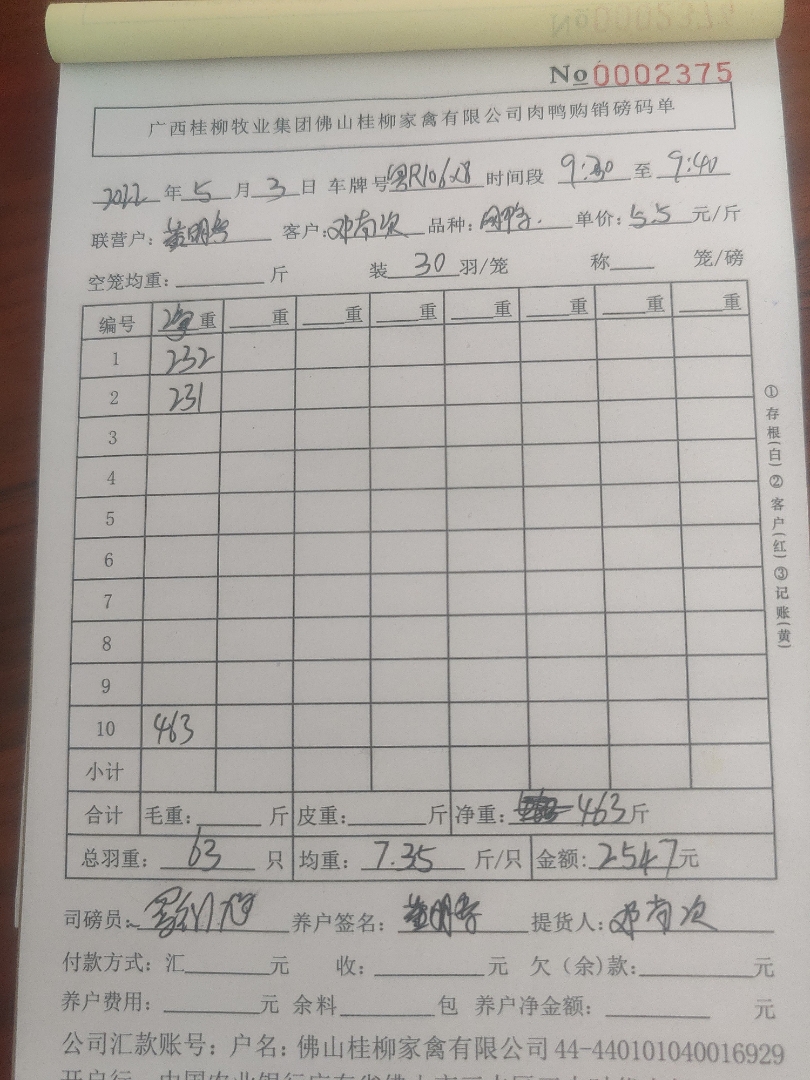 No0002375
广西桂柳牧业集团佛山桂柳家禽有限公司肉鸭购销磅码单
2022年5月3日 车牌号粤R106x8 时间段 9:30 至 9:40
联营户: 客户:邓南次 品种: 单价:5.5元/斤
空笼均重: 斤 装 30 羽/笼 称 笼/磅
编号 重 重 重 重 重 重 重 重
1 232
2 231
3
4
5
6
7
8
9
10 463
小计
合计 毛重: 斤 皮重: 斤 净重: 463斤
总羽重: 63 只 均重: 7.35 斤/只 金额: 2547元
司磅员: 养户签名: 提货人:邓南次
付款方式: 汇 元 收: 元 欠(余)款: 元
养户费用: 元 余料 包 养户净金额: 元
公司汇款账号: 户名: 佛山桂柳家禽有限公司 44-440101040016929
①存根(白)②客户(红)③记账(黄)